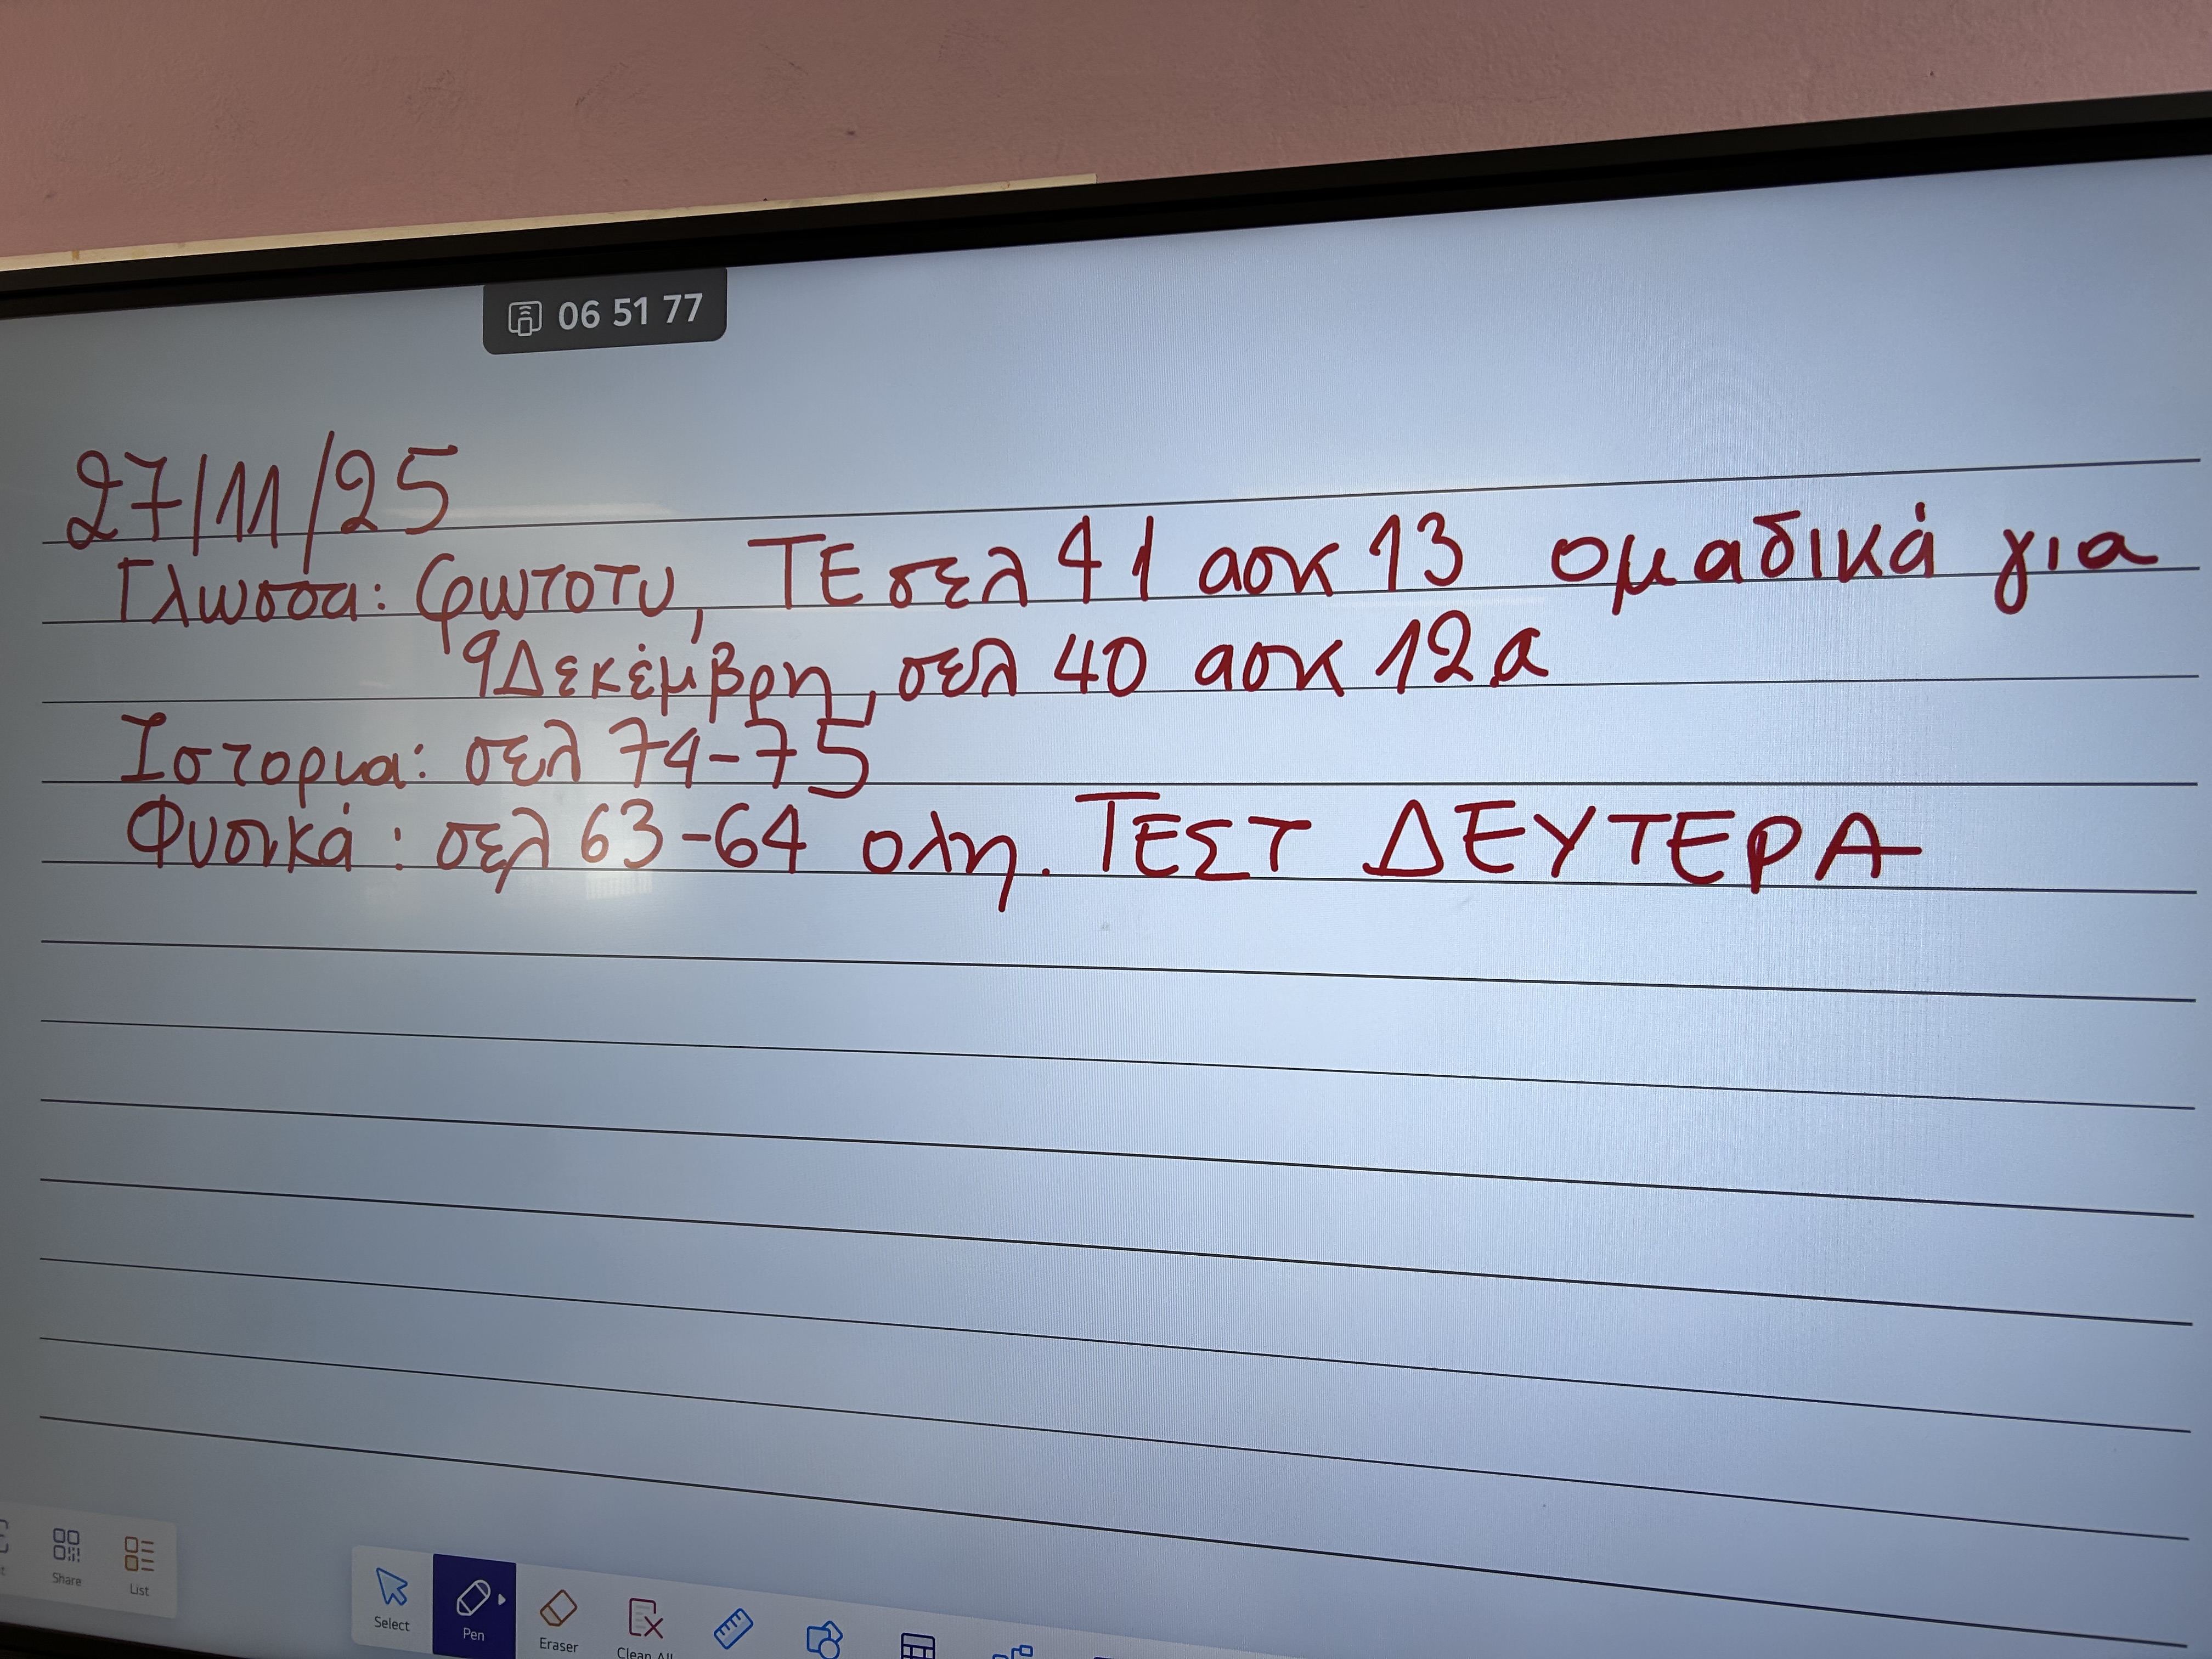 06 51 77
27/11/25
Γλωσσα: φωτοτυ, ΤΕ σελ 41 ασκ 13 ομαδικά για
9 Δεκέμβρη, σελ 40 ασκ 12α
Ιστορια: σελ 74-75
Φυσικά: σελ 63-64 ολη. ΤΕΣΤ ΔΕΥΤΕΡΑ
Share
List
Select
Pen
Eraser
Clean All